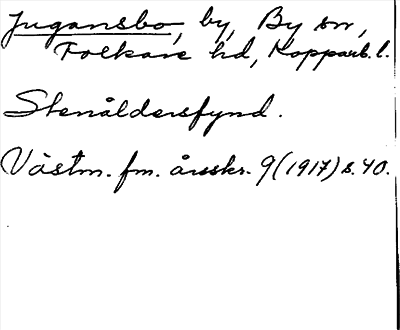 Jugansbo, by, By sn,
Folkare hd, Kopparb. l.
Stenåldersfynd.
Västm. fm. årsskr. 9 (1917) s. 40.